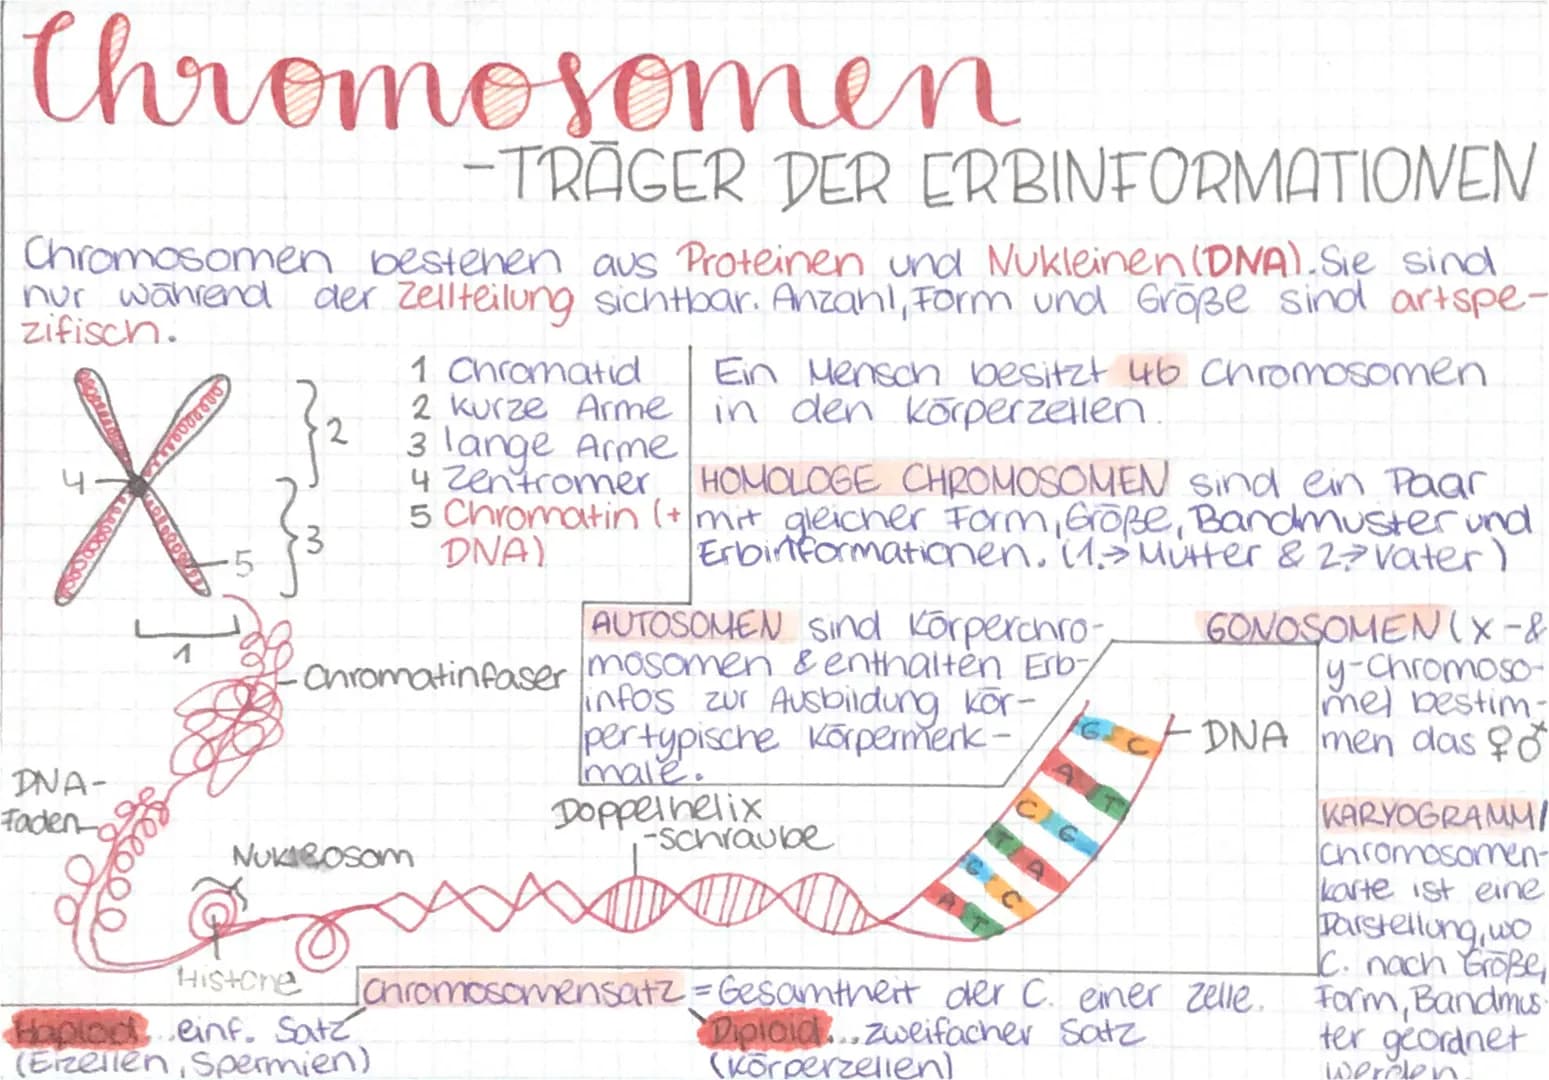 Chromosomen
-TRÄGER DER ERBINFORMATIONEN
Chromosomen bestehen aus Proteinen und Nukleinen (DNA). Sie sind
nur während der Zellteilung sichtbar. Anzahl, Form und Größe sind artspe-
zifisch.
1 Chromatid
2 kurze Arme
3 lange Arme
4 Zentromer
5 Chromatin (+
DNA)
2
4
3
5
1
Ein Mensch besitzt 46 Chromosomen
in den Körperzellen.
HOMOLOGE CHROMOSOMEN sind ein Paar
mit gleicher Form, Größe, Bandmuster und
Erbinformationen. (1.→ Mutter & 2.→ Vater)
AUTOSOMEN sind Körperchro-
mosomen & enthalten Erb-
infos zur Ausbildung kör-
pertypische Körpermerk-
male.
GONOSOMEN (x-&
y-Chromoso-
me) bestim-
men das ♀♂
Chromatinfaser
DNA-
Faden
Nukleosom
Histone
Doppelhelix
-schraube
DNA
G C
A T
C G
T A
G C
A T
KARYOGRAMM/
Chromosomen-
karte ist eine
Darstellung, wo
C. nach Größe,
Form, Bandmus-
ter geordnet
werden.
Chromosomensatz = Gesamtheit der C. einer Zelle.
Haploid...einf. Satz
(Eizellen, Spermien)
Diploid...zweifacher Satz
(Körperzellen)